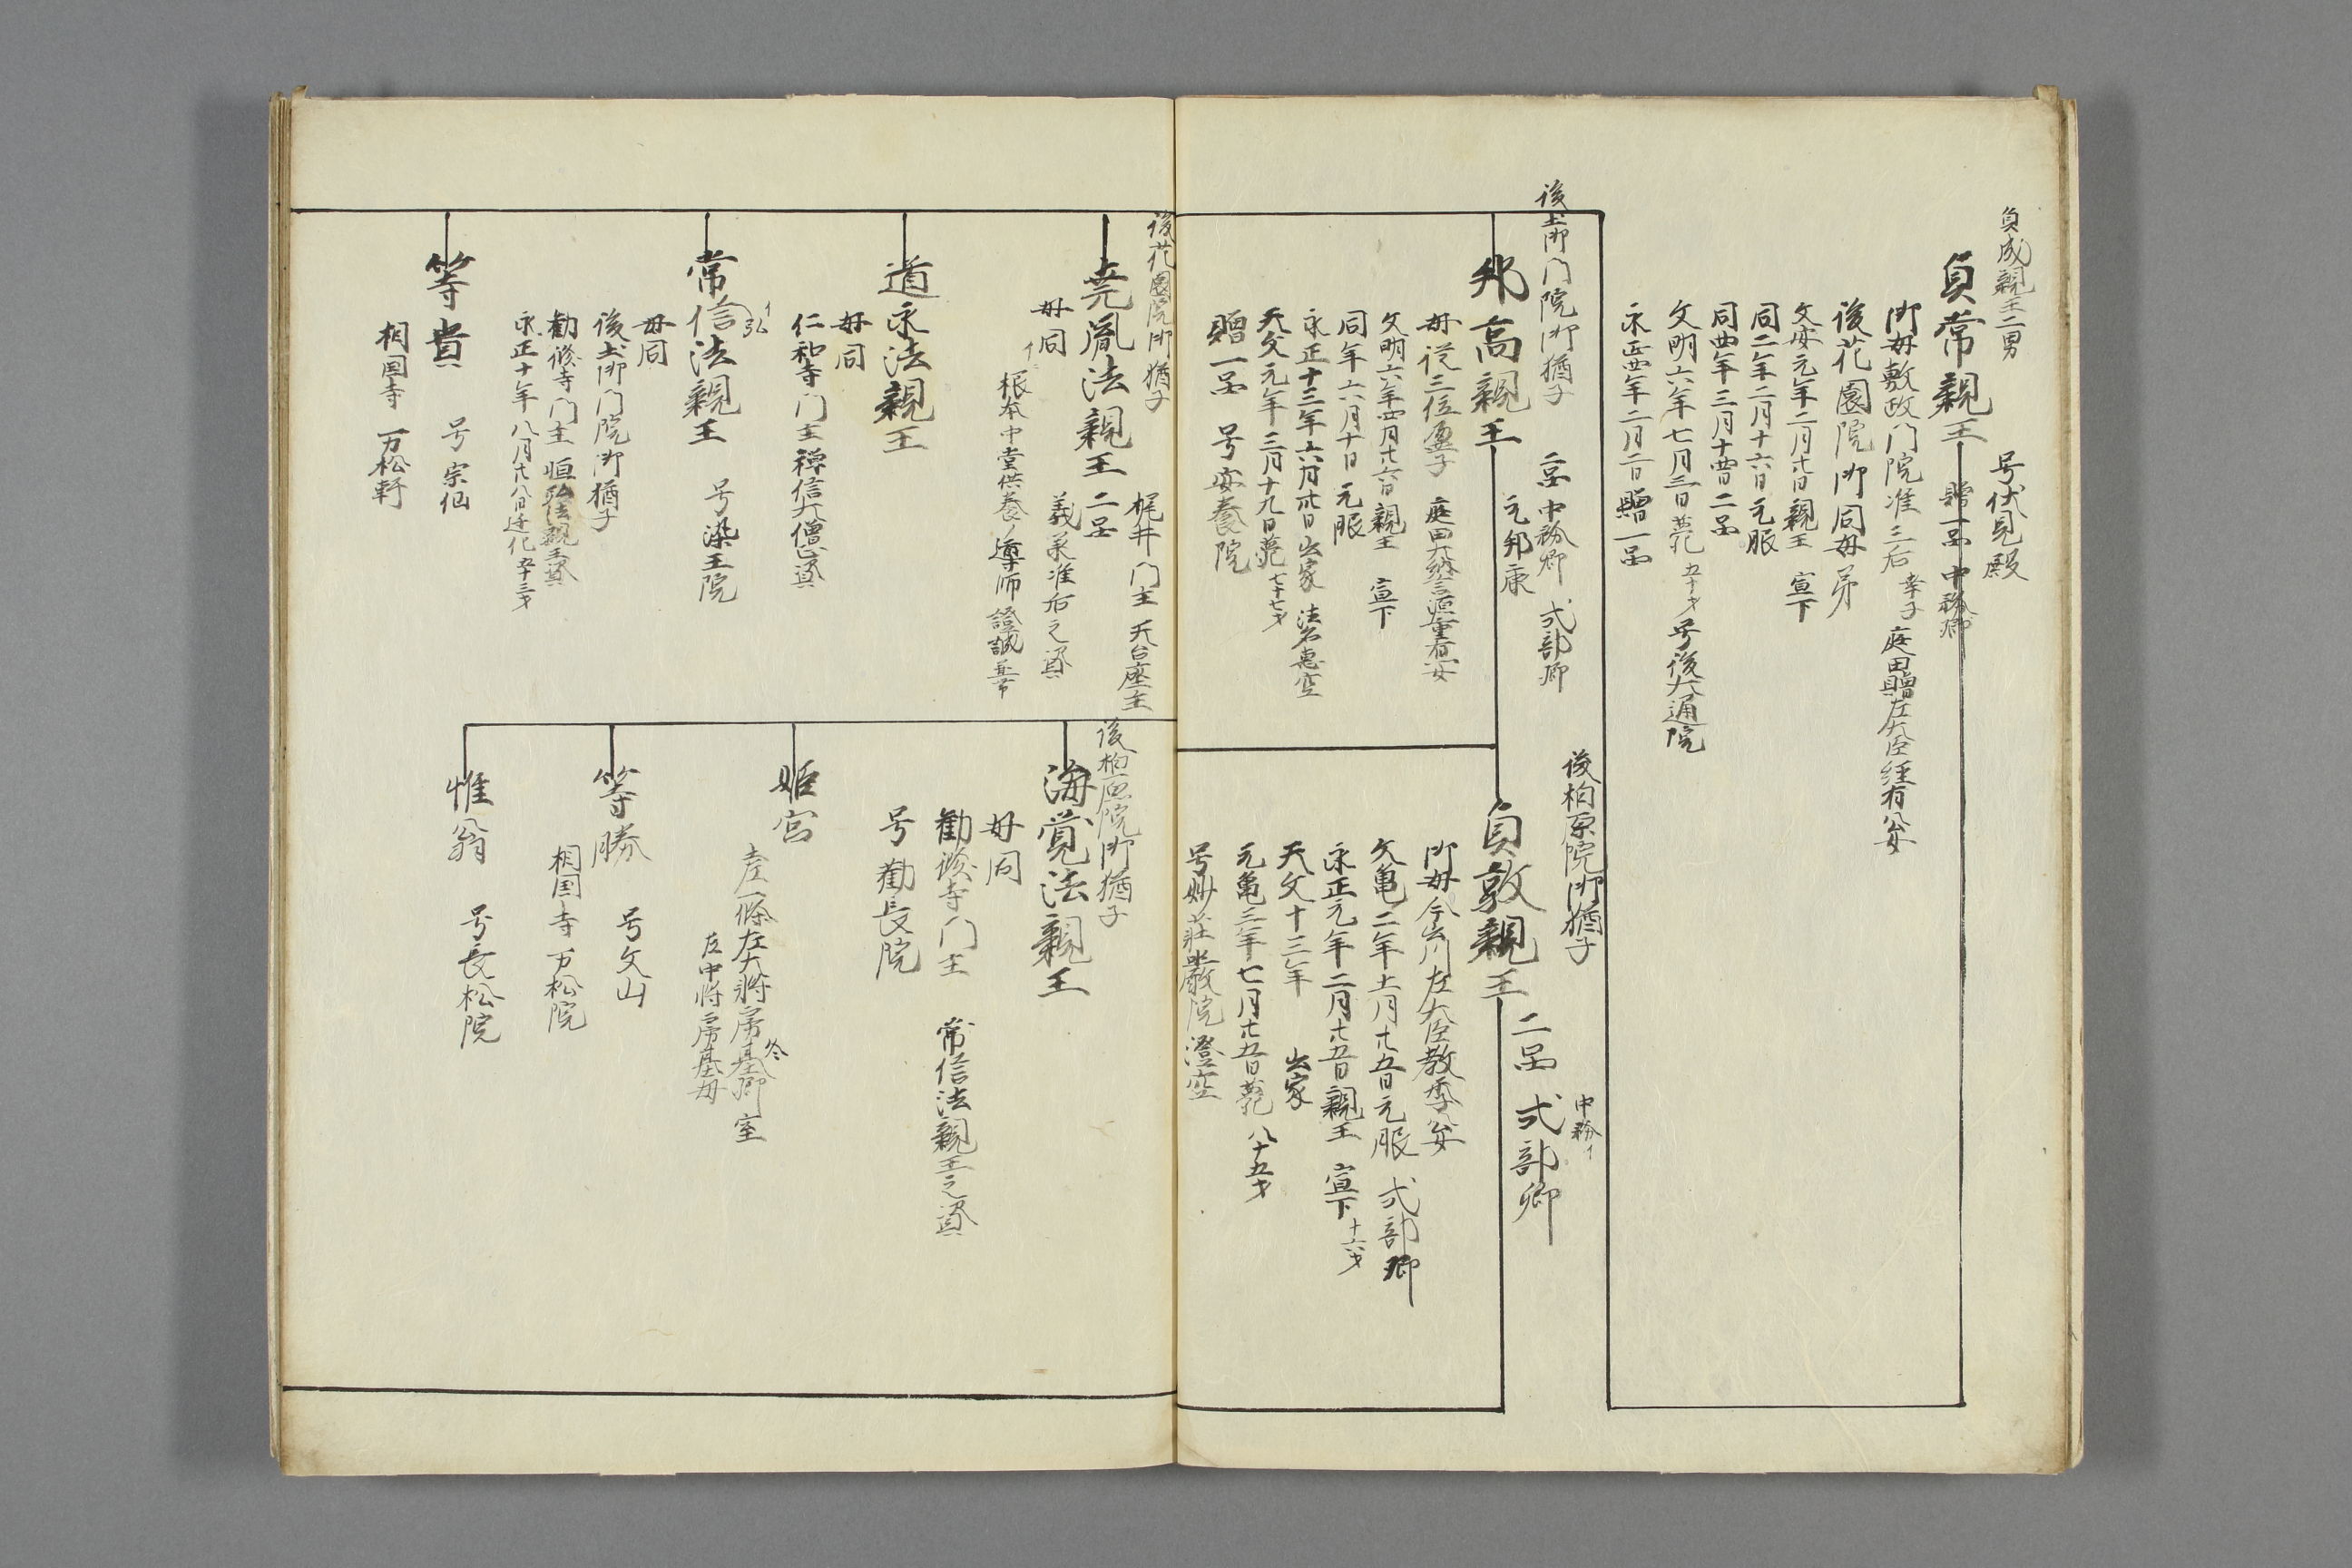 貞成親王二男
貞常親王 贈一品 中務卿
号伏見殿
御母敷政門院准三后 幸子 庭田贈左大臣経有公女
後花園院御同母弟
文安元年二月廿日親王 宣下
同二年二月十六日元服
同四年三月十四日二品
文明六年七月三日薨 五十才 号後大通院
永正四年二月二日贈一品
後土御門院御猶子
邦高親王
二品 中務卿 式部卿
元邦康
母従三位盈子 庭田大納言源重有女
文明六年四月廿六日親王 宣下
同年六月十日 元服
永正十三年六月廿日出家 法名恵空
天文元年三月十九日薨 七十七才
贈一品 号安養院
後柏原院御猶子
貞敦親王 二品 式部卿
中務イ
御母今出川左大臣教季公女
文亀二年十一月廿五日元服 式部卿
永正元年二月廿五日親王 宣下 十六才
天文十三年 出家
元亀三年七月廿五日薨 八十五才
号妙荘厳院 澄空
後花園院御猶子
尭胤法親王 二品
梶井門主 天台座主
母同 義承准后之資
イ根本中堂供養ノ導師 證誠
道永法親王
母同
仁和寺門主 禅信大僧正資
常信法親王 号染王院
イ弘
母同
後土御門院御猶子
勧修寺門主 恒弘法親王資
永正十年八月廿八日迁化 五十三才
等貴 号宗仙
相国寺 万松軒
後柏原院御猶子
海覚法親王
母同
勧修寺門主 常信法親王之資
号勧長院
姫宮
一條左大将房基卿室
冬
左中将房基母
等勝 号文山
相国寺万松院
惟翁 号長松院